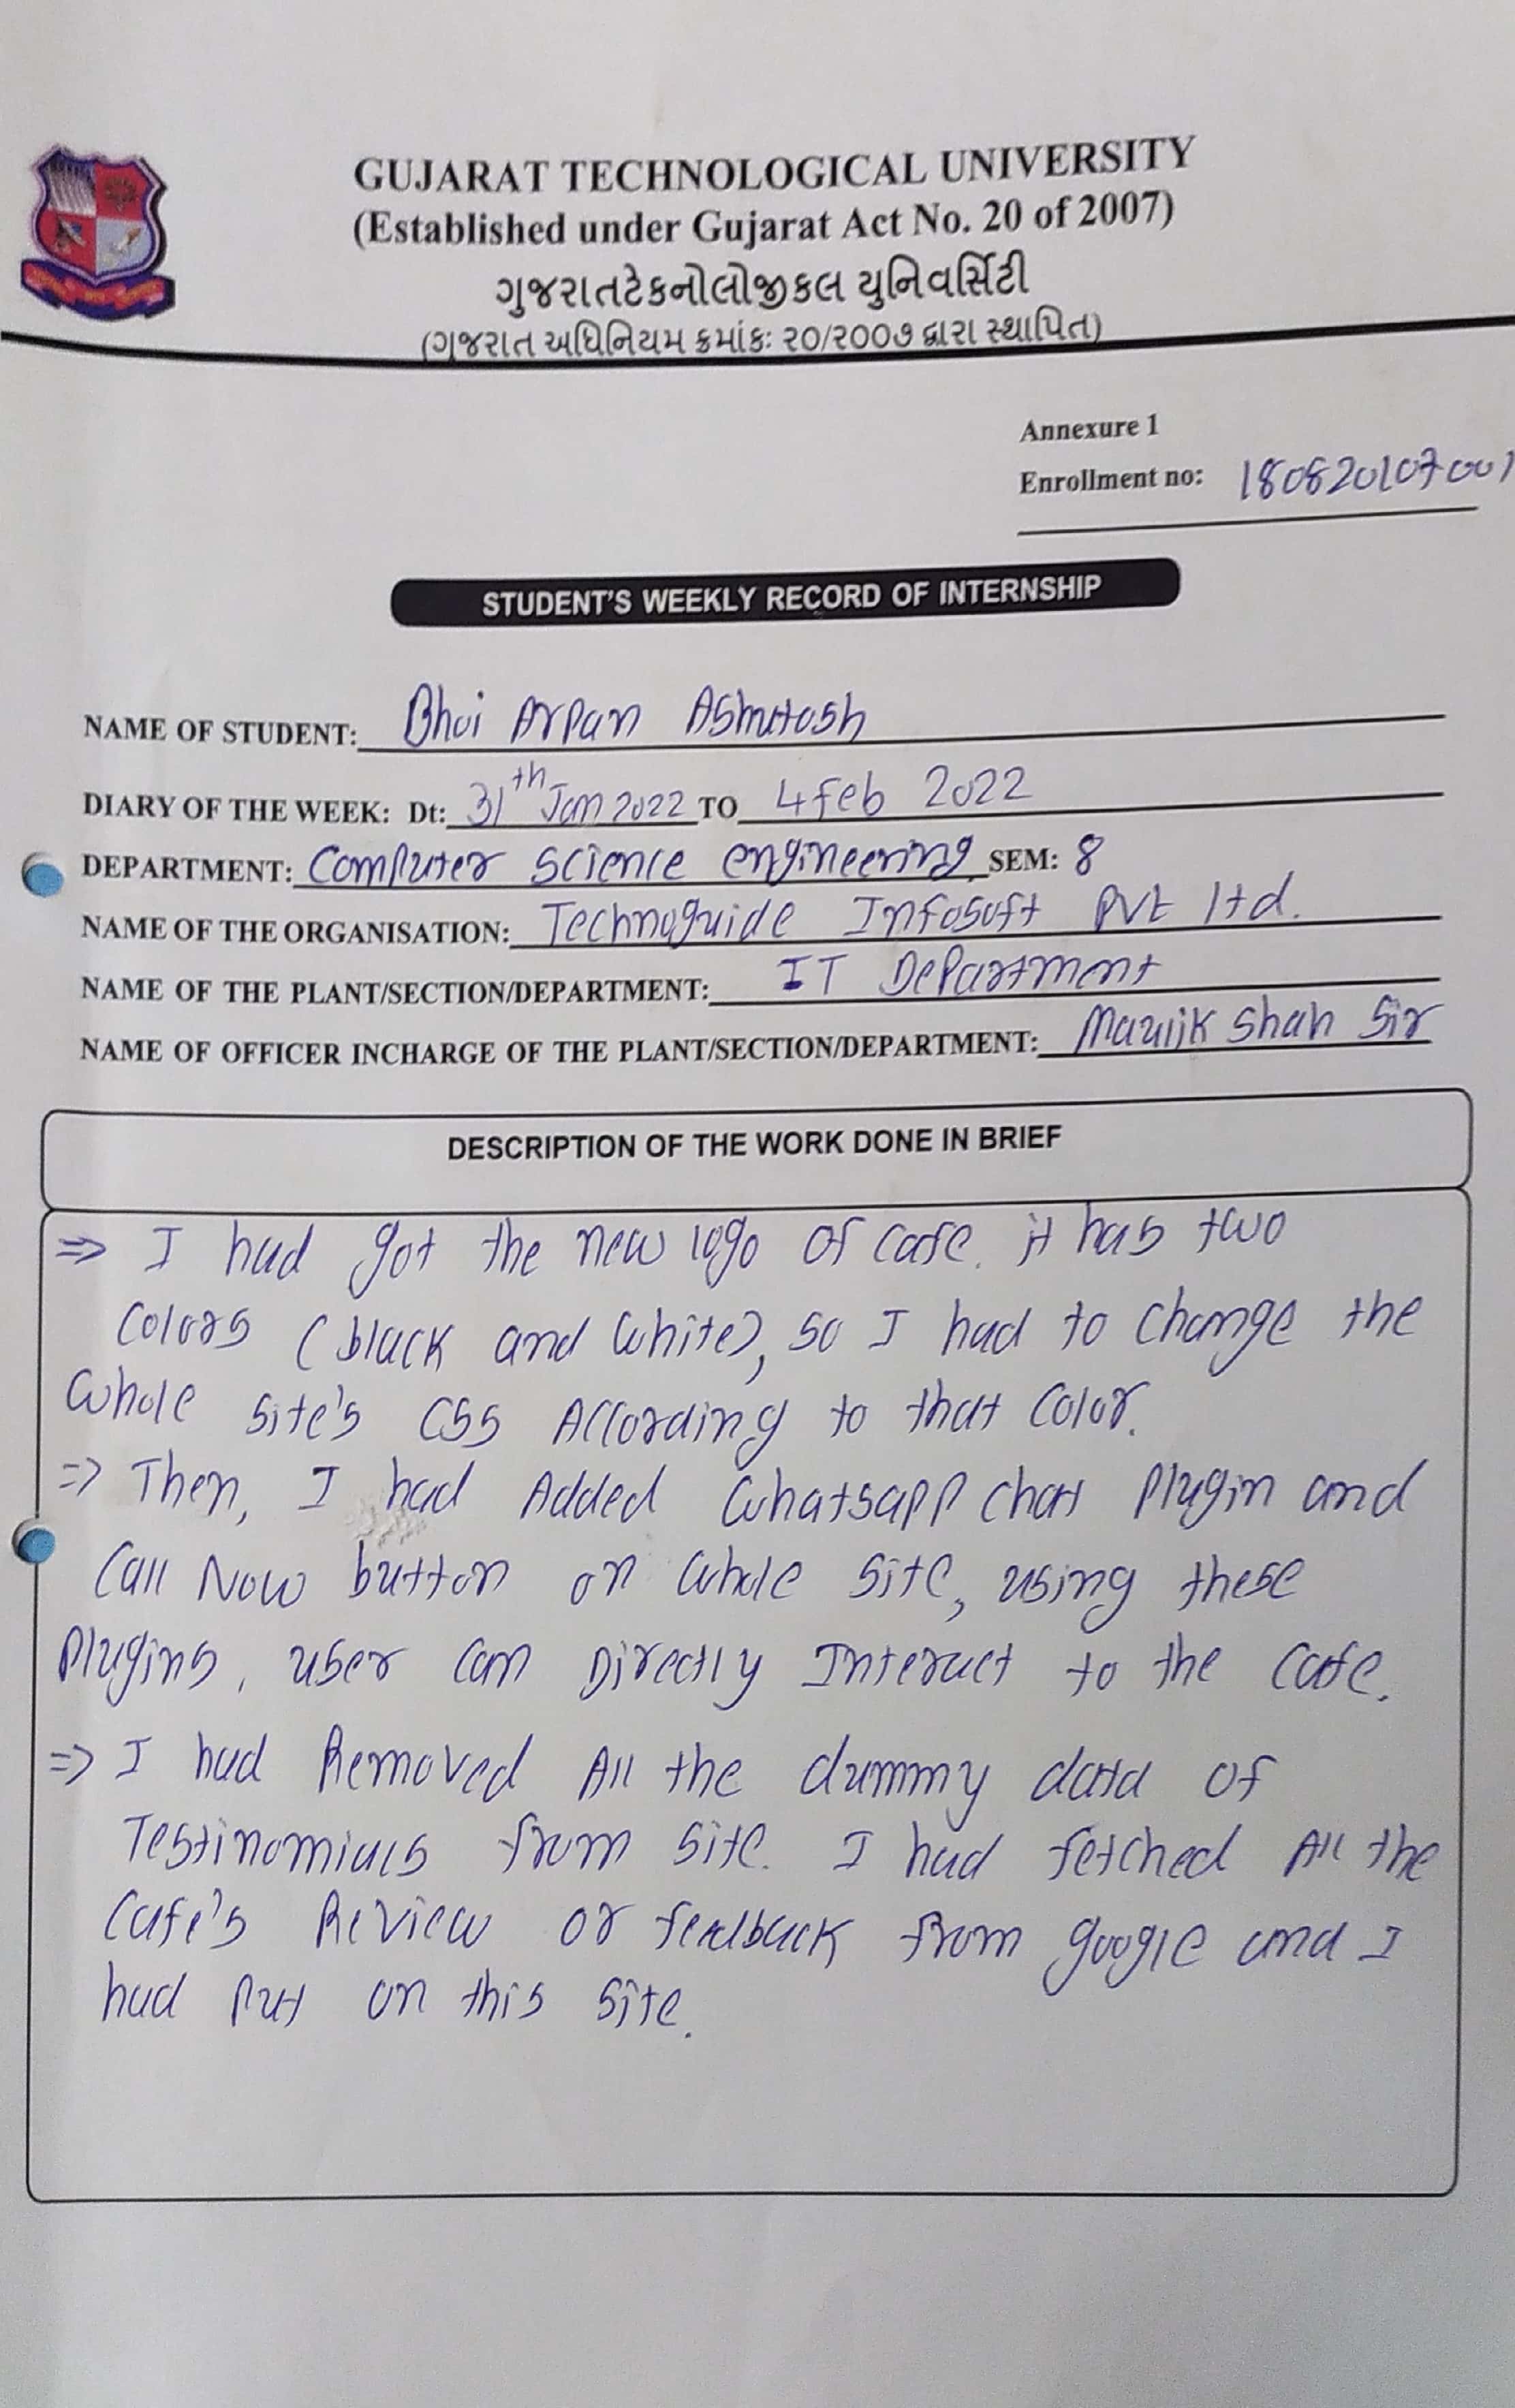 GUJARAT TECHNOLOGICAL UNIVERSITY
(Established under Gujarat Act No. 20 of 2007)
ગુજરાતટેકનોલોજીકલ યુનિવર્સિટી
(ગુજરાત અધિનિયમ ક્રમાંકઃ ૨૦/૨૦૦૭ દ્વારા સ્થાપિત)
Annexure 1
Enrollment no: 180820107001
STUDENT'S WEEKLY RECORD OF INTERNSHIP
NAME OF STUDENT: Bhoi Arpan Ashutosh
DIARY OF THE WEEK: Dt: 31th Jan 2022 TO 4 Feb 2022
DEPARTMENT: Computer Science engineering SEM: 8
NAME OF THE ORGANISATION: Technoguide Infosoft Pvt ltd.
NAME OF THE PLANT/SECTION/DEPARTMENT: IT Department
NAME OF OFFICER INCHARGE OF THE PLANT/SECTION/DEPARTMENT: Shah Sir
DESCRIPTION OF THE WORK DONE IN BRIEF
⇒ I had got the new logo of cafe. it has two
colors (black and white), so I had to change the
whole site's CSS According to that color.
⇒ Then, I had Added Whatsapp chat plugin and
Call Now button on whole site, using these
plugins, user can Directly Interact to the cafe.
⇒ I had Removed All the dummy data of
Testinomials from site. I had fetched All the
Cafe's Review or feedback from google and I
had put on this site.